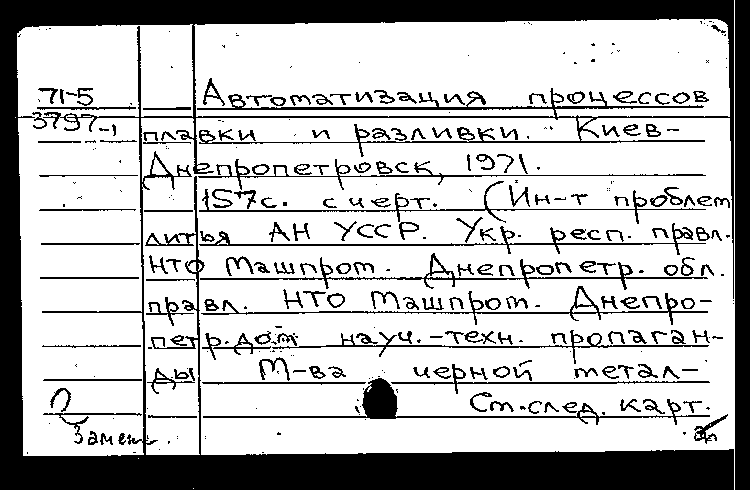 71-5 Автоматизация процессов
3797-1 плавки и разливки. Киев-
Днепропетровск, 1971.
157с. с черт. (Ин-т проблем
литья АН УССР. Укр. респ. правл.
НТО Машпром. Днепропетр. обл.
правл. НТО Машпром. Днепро-
петр. дом науч.-техн. пропаган-
ды М-ва черной метал-
См. след. карт.